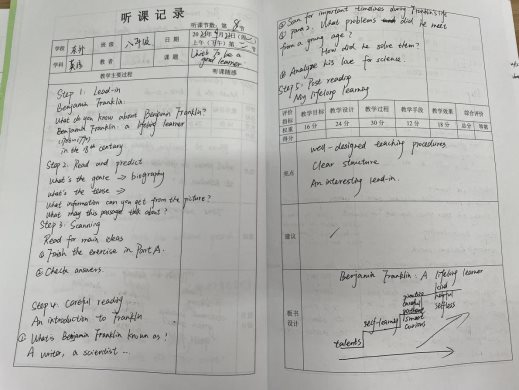 听课记录
听课节数：第 节
学段 班级 八年级 日期
上午（下午）第 节
学科 英语 教者 课题 Unit 5 To be a good learner
教学主要过程 听课随感
Step 1: Lead-in
Benjamin Franklin.
What do you know about Benjamin Franklin?
Benjamin Franklin: a lifelong learner
in the 18th century
Step 2: Read and predict
What's the genre → biography
what's the tense →
What information can you get from the picture?
What may this passage talk about?
Step 3: Scanning
Read for main ideas
① Finish the exercise in Part A.
② Check answers.
Step 4: Careful reading
An introduction to Franklin
① What's Benjamin Franklin known as?
A writer, a scientist ...
for important timelines during Franklin's life
para 2. What problems did he meet
from a young age?
How did he solve them?
Analyze his love for science.
Step 5: Post reading
My lifelong learning
评价指标 教学目标 教学设计 教学过程 教学手段 教学效果 综合评价
权重 16分 24分 30分 12分 18分 总分 等第
得分
亮点
well-designed teaching procedures
Clear structure
An interesting lead-in.
建议
板书设计
Benjamin Franklin: A lifelong learner
kind
helpful
selfless
smart
curious
self-learning
talents